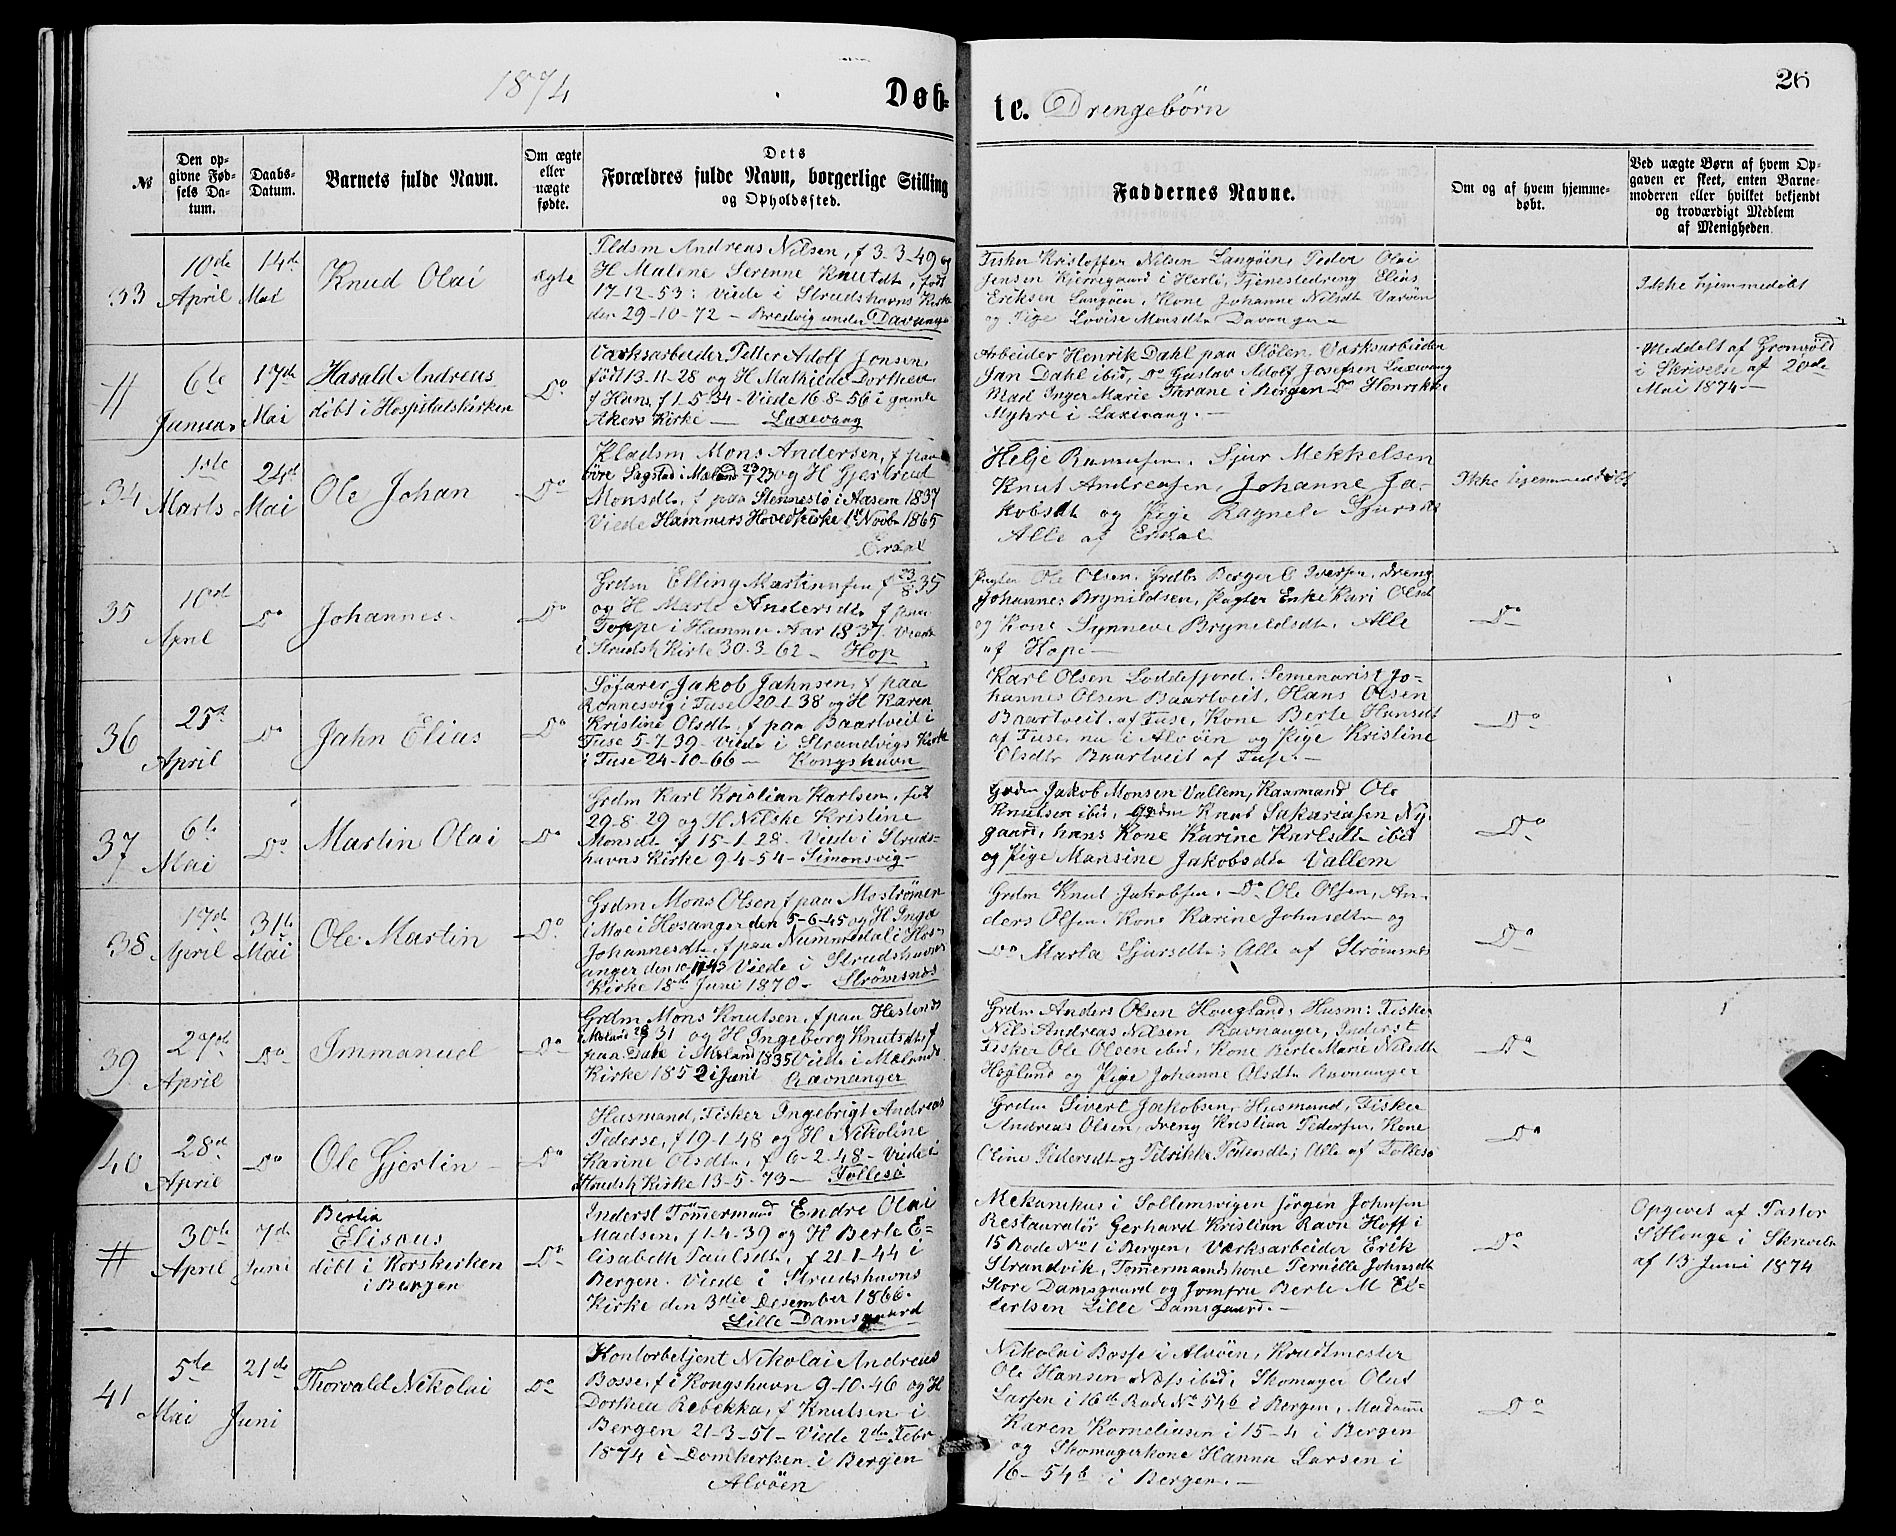 1874
Døb-
te. Drengebørn
26
№
Den op-
givne Fød-
sels Da-
tum.
Daabs-
Datum.
Barnets fulde Navn.
Om ægte
eller
uægte
fødte.
Dets
Forældres fulde Navn, borgerlige Stilling
og Opholdssted.
Faddernes Navne.
Om og af hvem hjemme-
døbt.
Ved uægte Børn af hvem Op-
gaven er skeet, enten Barne-
moderen eller hvilket bekjendt
og troværdigt Medlem
af Menigheden.
33
10de
April
14de
Mai
Knud Olai
ægte
Andreas Nilsen, f 3-3-49 og
H Malene Serenne Knutdt, født
17-12-53: Viede i Strudshavns Kirke
den 29-10-72 - Bredvig under Davanger
Fisker Kristoffer Nilsen Langöen, Peder Olai
Jensen Kjerregaard i Herlö, Tjenestedreng Elias
Eriksen Langöen, Kone Johanne Nilsdt Varöen
og Pige Lovise Monsdt Davanger
Ikke hjemmedöbt
#
6te
Januar
17de
Mai
Harald Andreas
döbt i Hospitalskirken
Do
Værksarbeider Petter Adolf Jonsen
født 13-11-28 og H Mathilde Dorthea
f Hans, f 1-5-34 - Viede 16-8-56 i gamle
Akers Kirke - Laxevaag
Arbeider Henrik Dahl paa Stölen Værksarbeider
Jan Dahl ibid, Do Gustav Adolf Josefsen Laxevaag
Mad Inger Marie Thrane i Bergen Do Henrikke
Myhre i Laxevaag. -
Meddelt af Gronvöld
i Skrivelse af 20de
Mai 1874 -
34
1ste
Marts
24de
Mai
Ole Johan
Do
Pladsm Mons Andersen, f paa
övre Sagstad i Mæland 23 og H Gjertrud
Monsdt, f paa Stennestö i Aasene 1837
Viede Hammers Hovedkirke 1 Novb 1865
Erdal
Helje Rasmusen. Sjur Mekkelsen
Knut Andreasen, Johanne Ja-
kobsdt og Pige Ragnele Sjursdt
Alle af Erdal
Ikke hjemmedöbt
35
10de
April
Do
Johannes.
Do
Grdm Elling Martinusen f 23/8 35
og H Marte Andersdt f paa
Toppe i Hammer Aar 1837. Viede
i Strudsh Kirke 30-3-62 - Hop
Ole Olsen. Grdbr Berger O Iversen. dreng
Johannes Brynildsen, Pagter Enke Kari Olsdt
og Kone Synneve Bryneldsdt. Alle
af Hope -
Do
36
25de
April
Do
Jahn Elias
Do
Söfarer Jakob Jahnsen, f paa
Rönnesvig i Fuse 20-1-38 og H Karen
Kristine Olsdt, f paa Baartveit i
Fuse 5-7-39 - Viede i Strandvigs Kirke
i Fuse 24-10-66 - Kongshavn
Karl Olsen Loddefjord. Semenarist Jo-
hannes Olsen Baartveit. Hans Olsen
Baartveit. af Fuse, Kone Berte Hansdt
af Fuse, nu i Alvöen og Pige Kristine
Olsdt Baartveit af Fuse. -
Do
37
6te
Mai
Do
Martin Olai
Do
Grdm Karl Kristian Karlsen. föt
29-8 29 og H Nilske Kristine
Monsdt f 15-1-28. Viede i Struds-
havns Kirke 9 4-54 - Simonsvig -
Grdm Jakob Monsen Vallem, Kaarmand Ole
Knutsen ibid, Grdm Knut Sakariasen Ny-
gaard, hans Kone Karine Karlsdt ibid
og Pige Mansine Jakobsdt Vallem
Do
38
17de
April
31te
Mai
Ole Martin
Do
Grdm Mons Olsen f paa Moströmen
i Moe i Hosanger den 5-6-45 og H Inga
Johannesdt, f paa Nummedal i Hos-
anger den 10-11 43 Viede i Strudshavns
Kirke 18de Juni 1870 - Strömsnæs
Grdm Knut Jakobsen, Do Ole Olsen, An-
ders Olsen Kone Karine Johnsdt og
Do Marta Sjursdt; Alle af Strömsnæs
Do
39
27de
April
Do
Immanuel
Do
Grdm Mons Knutsen, f paa Hestenes
31 og H Ingeborg Knutsdt f
paa Dale i Meland 1835 Viede i Mælands
Kirke 1852 i Juni Ravnanger
Grdm Anders Olsen Hougland, Husm: Fisker
Nils Andreas Nilsen Ravnanger, Inderst
Fisker Ole Olsen ibid, Kone Berte Marie Nilsdt
Höjlund og Pige Johanne Olsdt Ravnanger
Do
40
28de
April
Do
Ole Gjertin -
Do
Husmand, Fisker Ingebrigt Andreas
Pederse, f 19-1-48 og H Nikoline
Karine Olsdt, f 6-2-48 - Viede i
Strudsh Kirke 13-5-73 - Follesö
Grdm Sivert Jakobsen, Husmand, Fisker
Andreas Olsen, dreng Kristian Pedersen, Kone
Oline Pedersdt og Petrikke Pedersdt; Alle af Follesö
Do
#
30te
April
7de
Juni
Bertin
Elisaus
döbt i Korskirken
i Bergen
Do
Inderst Tömmermand Endre Olai
Madsen, f 1-4-39 og H Berte E-
lisabeth Paulsdt, f 21-1-44 i
Bergen. Viede i Strudshavns
Kirke den 3die Desember 1866.
Lille Damsgaard
Mekanikus i Sollemsvigen Jörgen Johnsen
Restauratör Gerhard Kristian Ravn Hoff i
15 Rode No 1 i Bergen, Værksarbeider Erik
Strandvik, Tömmermandskone Pernille Johnsdt
Store Damsgaard og Jomfru Berte M El-
lertsen Lille Damsgaard. -
Do
Opgivet af Pastor
S Houge i Skrivelse
af 13 Juni 1874
41
5te
Mai
21de
Juni
Thorvald Nikolai
Do
Kontorbetjent Nikolai Andreas
Bosse, f i Kongshavn 9-10-46 og H
Dorthea Rebekka, f Knutsen i
Bergen 21-3-51 - Viede 2den Febr
1874 i Domkirken i Bergen
Alvöen
Nikolai Bosse i Alvöen, Krudtmester
Ole Hansen Næss ibid, Skomager Oluf
Larsen i 16de Rode No 54b i Bergen, Madame
Karen Korneliusen i 15-4 i Bergen
og Skomagerkone Hanna Larsen i
16-54b i Bergen. -
Do